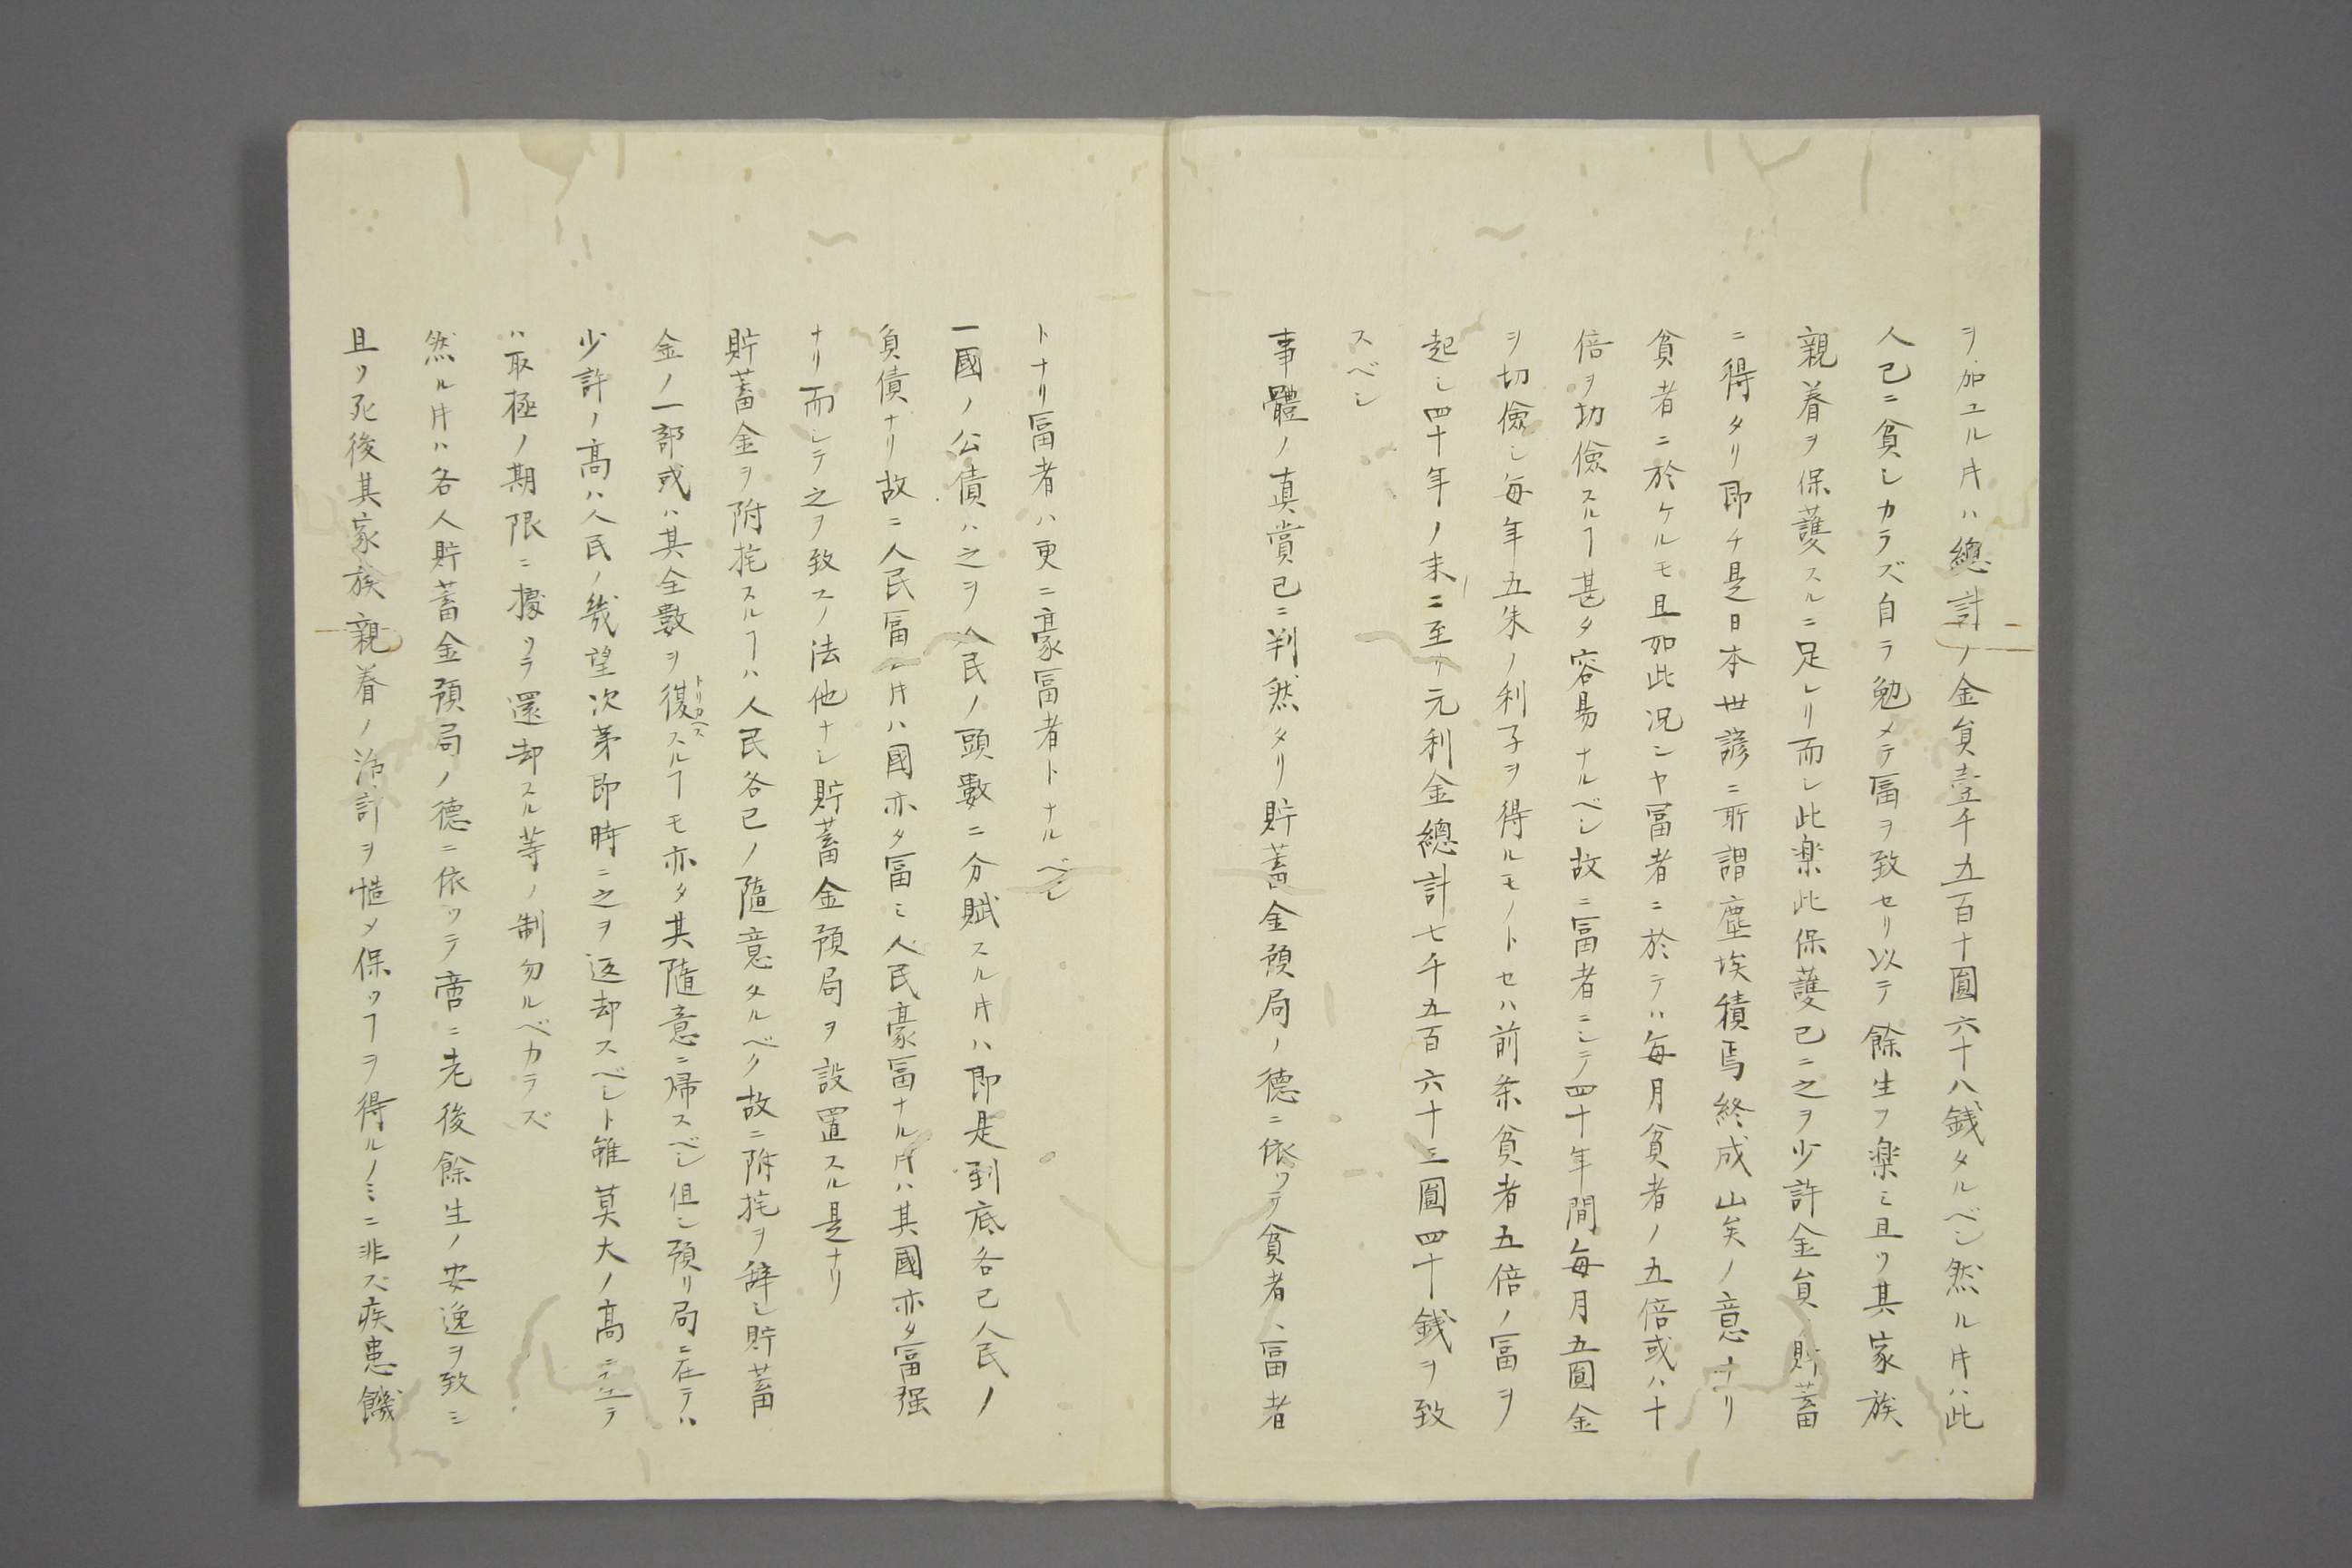 ヲ加エル𪜈ハ總計ノ金員壹千五百十圓六十八銭タルベシ然ル𪜈ハ此
人已ニ貧シカラズ自ラ勉メテ冨ヲ致セリ以テ餘生ヲ楽ミ且ツ其家族
親眷ヲ保護スルニ足レリ而シ此楽此保護已ニ之ヲ少許金員ノ貯蓄
ニ得タリ即チ是日本世諺ニ所謂塵埃積焉終成山矣ノ意ナリ
貧者ニ於ケルモ且如此况ンヤ冨者ニ於テハ毎月貧者ノ五倍或ハ十
倍ヲ切儉スルヿ甚タ容易ナルベシ故ニ冨者ニシテ四十年間毎月五圓金
ヲ切儉シ毎年五朱ノ利子ヲ得ルモノトセハ前条貧者五倍ノ冨ヲ
起シ四十年ノ末ニ至リ元利金總計七千五百六十三圓四十銭ヲ致
スベシ
事體ノ真賞已ニ判然タリ貯蓄金預局ノ德ニ依ツテ貧者ハ冨者
トナリ冨者ハ更ニ豪冨者トナルベシ
一國ノ公債ハ之ヲ人民ノ頭數ニ分賦スル𪜈ハ即是到底各已人民ノ
負債ナリ故ニ人民冨ム𪜈ハ國亦タ冨ミ人民豪冨ナル𪜈ハ其國亦タ冨强
ナリ而シテ之ヲ致スノ法他ナシ貯蓄金預局ヲ設置スル是ナリ
貯蓄金ヲ附托スルヿハ人民各已ノ隨意タルベク故ニ附托ヲ辞シ貯蓄
金ノ一部或ハ其全數ヲ復トリカヘススルヿモ亦タ其隨意ニ帰スベシ但シ預リ局ニ在テハ
少許ノ髙ハ人民ノ幾望次第即時ニ之ヲ返却スベシト雖莫大ノ髙ニ至テ
ハ取極ノ期限ニ據ツテ還却スル等ノ制勿ルベカラズ
然ル𪜈ハ各人貯蓄金預局ノ德ニ依ツテ啻ニ老後餘生ノ安逸ヲ致シ
且ツ死後其家族親眷ノ活計ヲ慥メ保ツヿヲ得ルノミニ非ズ疾患饑